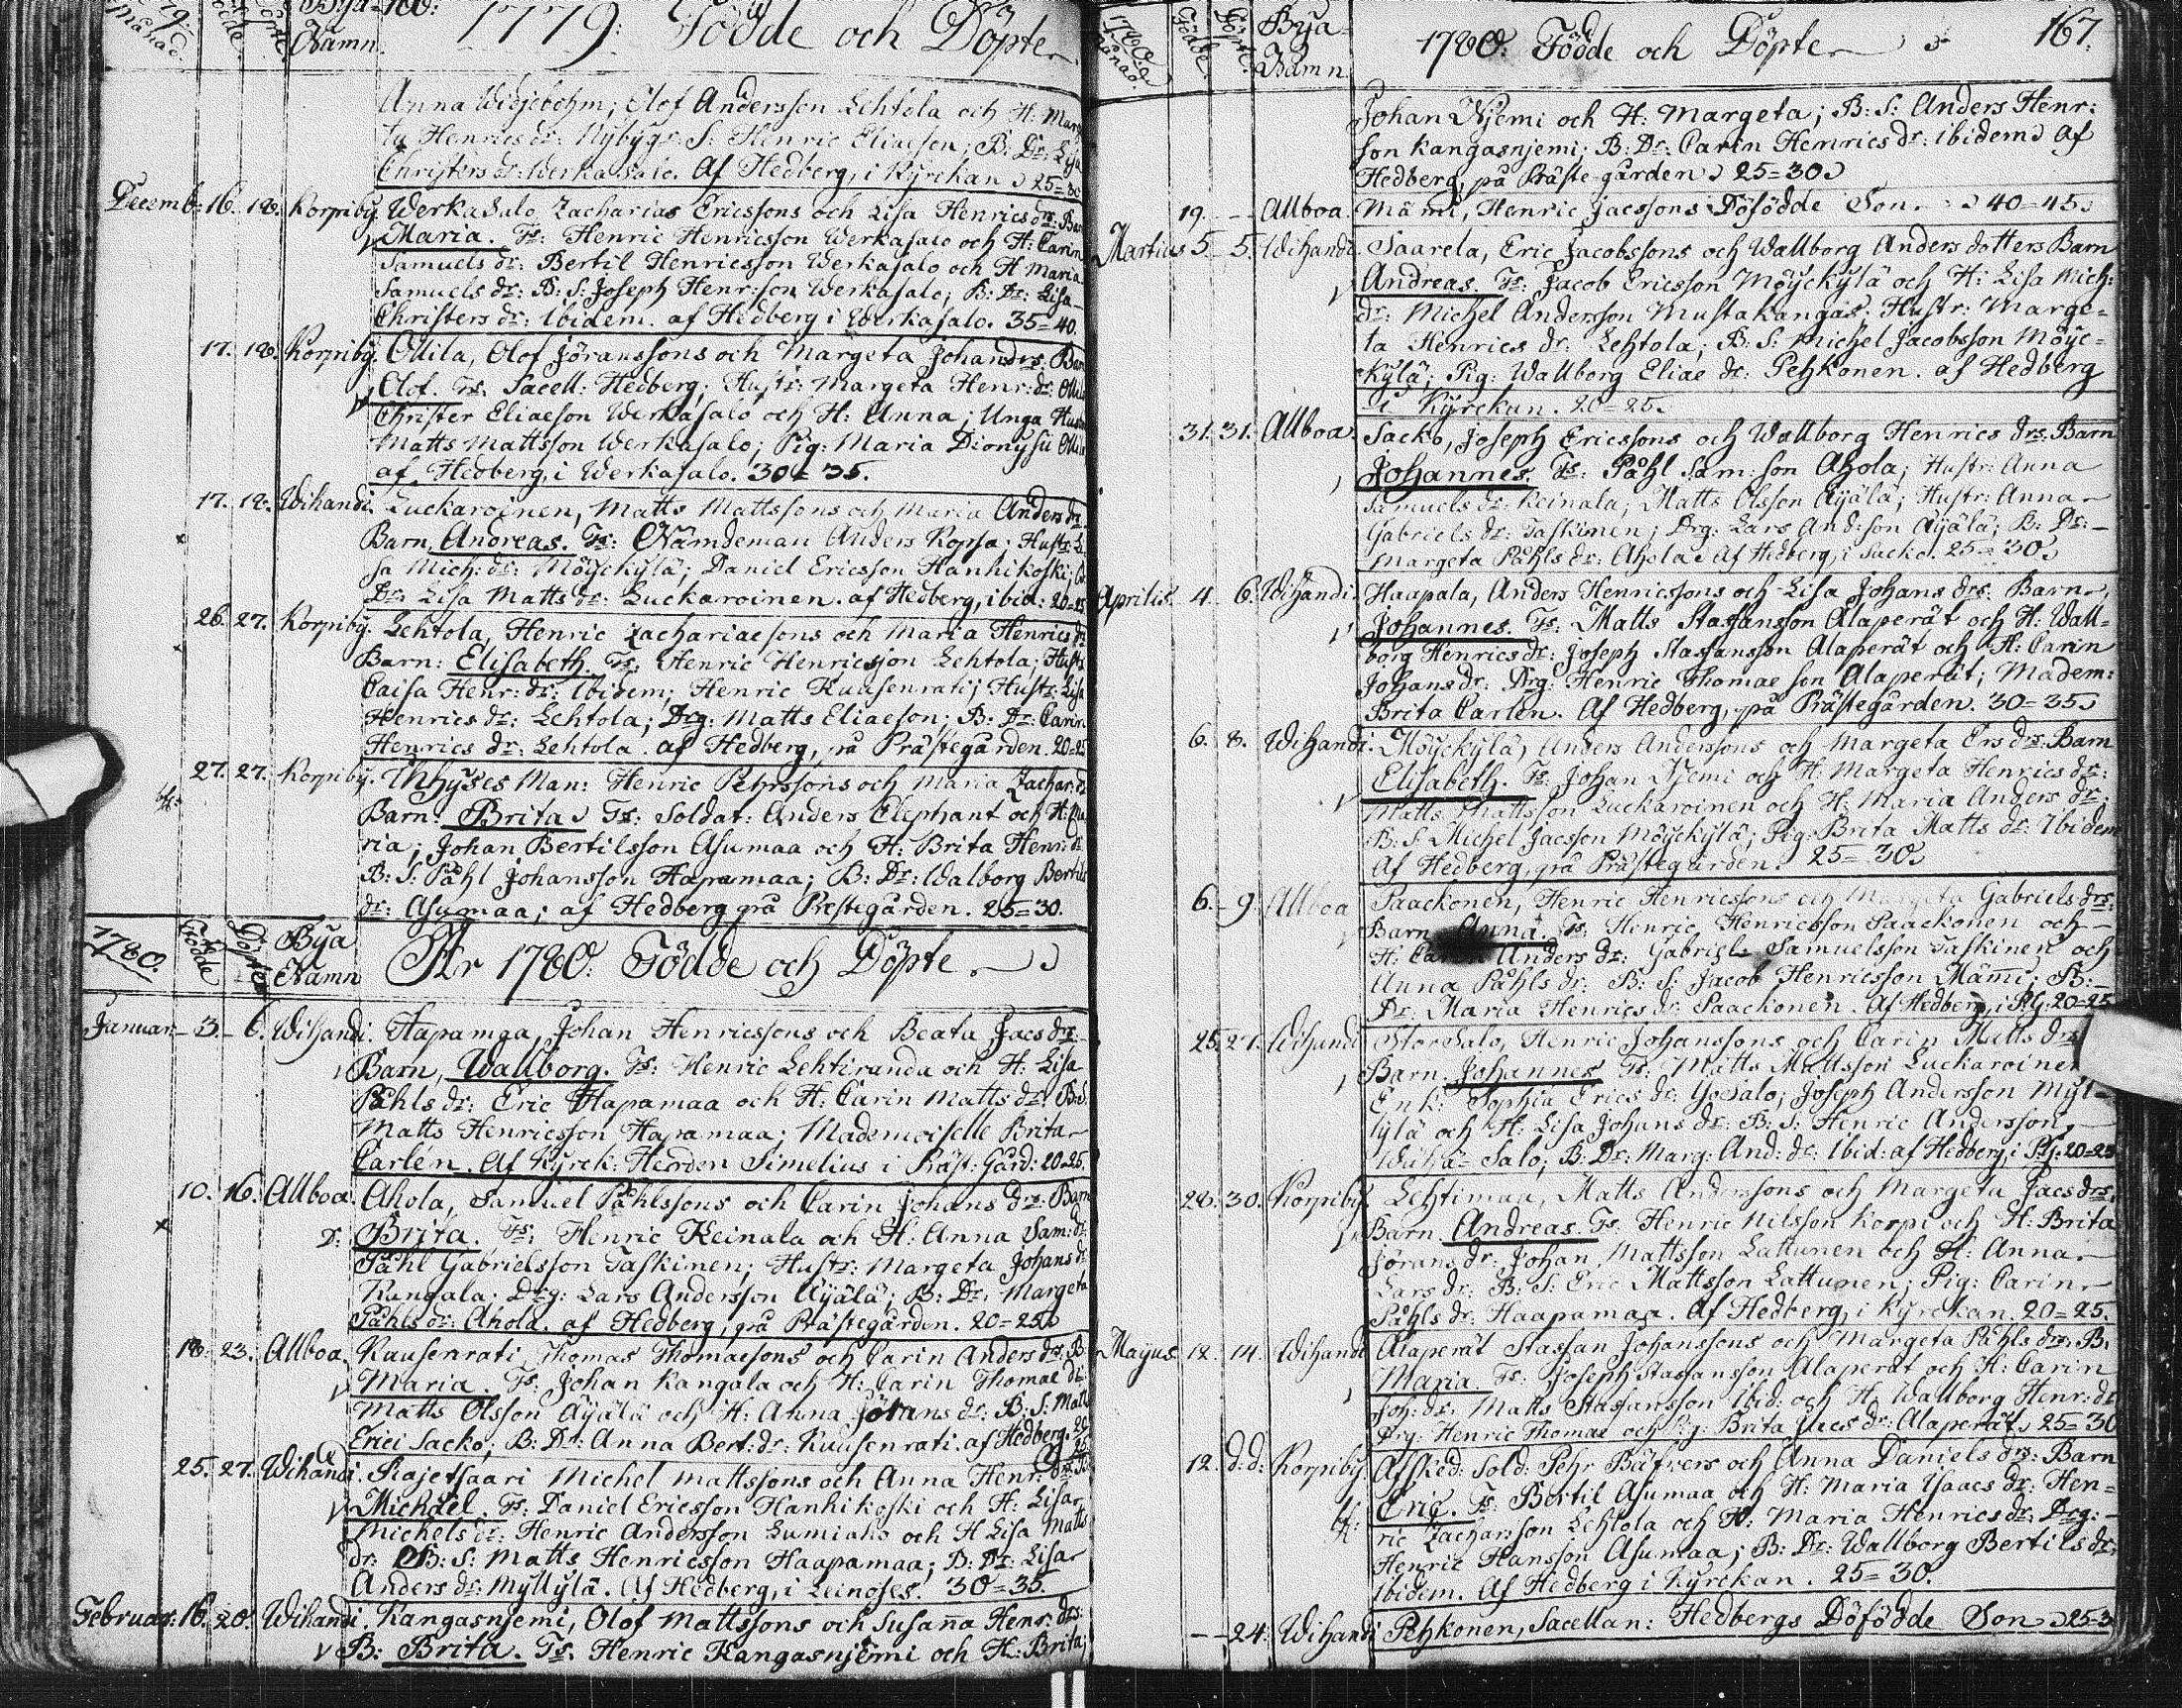 1779. Månad. Födde Döpte Bya Namn. 1779: Födde och Döpte
Anna Widjebohm; Olof Andersson Lehtola och H: Marge
ta Henrics dr: Nybygr: S: Henric Eliaeson; B: Dr: Lisa
Christers dr: Werkasalo. Af Hedberg, i Kyrckan 25=30
Decemb: 16. 18. Korpiby. Werkasalo Zacharias Ericssons och Lisa Henrics drs: Barn
Maria. Ts: Henric Henricsson Werkasalo och H: Carin
Samuels dr: Bertil Henricsson Werkasalo och H Maria
Samuels dr: B: S: Joseph Henr:son Werkasalo; B: Dr: Lisa
Christers dr: Ibidem. af Hedberg i Werkasalo. 35=40.
17. 18. Korpiby. Ollila, Olof Jöranssons och Margeta Johan drs: Barn
Olof. Ts: Sacell: Hedberg; Hustr: Margeta Henr: dr: Ollila
Christer Eliaeson Werkasalo och H: Anna; Unga
Matts Mattsson Werkasalo; Pig: Maria Dionysii Ollila
af Hedberg, i Werkasalo. 30=35.
17. 18. Wihandi. Luckaroinen, Matts Mattssons och Maria Anders drs
Barn, Andreas. Ts: Nämdeman Anders Kopsa; Hustr: Li
sa Mich: dr: Möyckylä; Daniel Ericsson Hanhikoski; B:
Dr: Lisa Matts dr: Luckaroinen. af Hedberg, ibid: 20=25
26. 27. Korpiby. Lehtola, Henric Zachariaesons och Maria Henrics dr
Barn: Elisabeth. Ts: Henric Henricsson Lehtola; Hustr
Caisa Henr: dr: Ibidem; Henric Kuusenrati; Hustr: Lisa
Henrics dr: Lehtola; Drg: Matts Eliaeson; B: Dr: Carin
Henrics dr: Lehtola. af Hedberg, på Prästegården. 20=25
27. 27. Korpiby. Thhyses Man: Henric Pehrssons och Maria Zachar: dr
Barn. Brita. Ts: Soldat: Anders Elephant och H: Ma
ria; Johan Bertilsson Asumaa och H: Brita Henr: dr
B: S: Påhl Johansson Hapamaa; B: Dr: Walborg Bertils
dr: Asumaa; af Hedberg på Prestegården. 25=30.
1780. Födde Döpte Bya Namn Åhr 1780: Födde och Döpte
Januar: 3. 6. Wihandi. Hapamaa, Johan Henricssons och Beata Jacs drs:
Barn, Wallborg. Ts: Henric Lehtiranda och H: Lisa
Påhls dr: Eric Hapamaa och H: Carin Matts dr: B: S:
Matts Henricsson Hapamaa; Mademoiselle Brita
Carlén. Af Kyrck: Herden Simelius i Präst: Gård: 20=25.
10. 16. Allboa. Ahola, Samuel Påhlssons och Carin Johans drs: Barn
D: Brita. Ts: Henric Keinala och H: Anna Sam: dr
Påhl Gabrielsson Taskinen; Hustr: Margeta Johans dr
Kangala: Drg: Lars Andersson Äyälä; B: Dr: Margeta
Påhls dr: Ahola. af Hedberg, på Prästegården. 20=25
18. 23. Allboa. Kuusenrati Thomas Thomaesons och Carin Anders drs: B.
Maria. Ts: Johan Kangala och H: Carin Thomae dr:
Matts Olsson Äyälä och H: Anna Jörans dr: B: S: Matts
Erici Sacko; B: Dr: Anna Bert: dr: Kuusenrati. af Hedberg. 20=25
25. 27. Wihandi. Rajetsaari Michel Mattssons och Anna Henr: drs: B
Michäel. Ts: Daniel Ericsson Hanhikoski och H: Lisa
Michels dr: Henric Andersson Lumiaho och H Lisa Matts
dr: B: S: Matts Henricsson Haapamaa; B: Dr: Lisa
Anders dr: Myllylä. Af Hedberg, i Leinoses. 30=35.
Februar: 16. 20. Wihandi. Kangasnjemi, Olof Mattssons och Susanna Henr: drs:
B: Brita. Ts: Henric Kangasnjemi och H: Brita;
1780. Månad. Födde. Döpte. Bya Namn 1780: Födde och Döpte 167.
Johan Njemi och H: Margeta; B: S: Anders Henr:
son Kangasnjemi; B: Dr: Carin Henrics dr: Ibidem af
Hedberg, på Präste gården 25=30
19. -- Allboa. Mämi, Henric Jacssons Döfödde Son. 40=45
Martius 5. 5. Wihandi. Saarela, Eric Jacobssons och Wallborg Anders dotters Barn
Andreas. Ts: Jacob Ericsson Möyckylä och H: Lisa Mich:
dr: Michel Andersson Mustakangas. Hustr: Marge=
ta Henrics dr: Lehtola; B: S: Michel Jacobsson Möyc=
kylä; Pig: Wallborg Eliae dr: Pehkonen. af Hedberg
i Kyrckan. 20=25.
31. 31. Allboa. Sacko, Joseph Ericssons och Wallborg Henrics drs: Barn
Johannes. Ts: Påhl Sam: son Ahola; Hustr: Anna
Samuels dr: Keinala; Matts Olsson Äyälä; Hustr: Anna
Gabriels dr: Taskinen; Drg: Lars And: son Äyälä; B: Dr:
Margeta Påhls dr: Ahola. Af Hedberg, i Sacko. 25=30
Aprilis 4. 6. Wihandi. Haapala, Anders Henricssons och Lisa Johans drs. Barn
Johannes. Ts: Matts Staffansson Alaperät och H: Wall=
borg Henrics dr: Joseph Staffansson Alaperät och H: Carin
Johans dr: Drg: Henric Thomae son Alaperät; Madem:
Brita Carlén. Af Hedberg, på Prästegården. 30=35
6. 8. Wihandi. Möyckylä, Anders Anderssons och Margeta Ers drs: Barn
Elisabeth. Ts: Johan Njemi och H: Margeta Henrics dr:
Matts Mattsson Luckaroinen och H: Maria Anders dr;
B: S: Michel Jacsson Möyckylä; Pig: Brita Matts dr: Ibidem
Af Hedberg, på Prästegården. 25=30
6. 9. Allboa Paackonen, Henric Henricssons och Margeta Gabriels drs:
Barn Anna. Ts: Henric Henricsson Paackonen och
H: Carin Anders dr: Gabriel Samuelsson Taskinen och
Anna Påhls dr: B: S: Jacob Henricsson Mämi; B:
Dr: Maria Henrics dr: Paackonen. Af Hedberg, i P:G: 20=25
25. 27. Wihandi Storsalo, Henric Johanssons och Carin Matts drs
Barn. Johannes Ts: Matts Mattsson Luckaroinen
Enk: Sophia Erics dr: Yovsalo; Joseph Andersson Myl=
lylä och H: Lisa Johans dr: B: S: Henric Andersson
Wähä=Salo; B: Dr: Marg: And: dr: Ibid: af Hedberg, i P:G: 20=25
28. 30. Korpiby. Lehtimaa, Matts Anderssons och Margeta Jacs drs
Barn. Andreas Ts: Henric Nilsson Korpi och H: Brita
Jörans dr: Johan Mattsson Lattunen och H: Anna
Lars dr: B: S: Eric Mattsson Lattunen; Pig: Carin
Påhls dr: Haapamaa. Af Hedberg, i Kyrckan. 20=25.
Majus 12. 14. Wihandi Alaperät Staffan Johanssons och Margeta Påhls drs: B.
Maria. Ts: Joseph Staffansson Alaperät och H: Carin
Joh: dr: Matts Staffansson Ibid: och H: Wallborg Henr: dr
Drg: Henric Thomae och Pig: Brita Jacs dr: Alaperät 25=30
12. d:d: Korpiby. Afsked: Sold: Pehr Bäfvers och Anna Daniels drs: Barn
Eric. Ts: Bertil Asumaa och H: Maria Isaacs dr: Hen=
ric Zacharsson Lehtola och H: Maria Henrics dr: Drg:
Henric Hansson Asumaa; B: Dr: Wallborg Bertils dr:
Ibidem. Af Hedberg i Kyrckan. 25=30.
-- 24. Wihandi Pehkonen, Sacellan: Hedbergs Döfödde Son 25=3